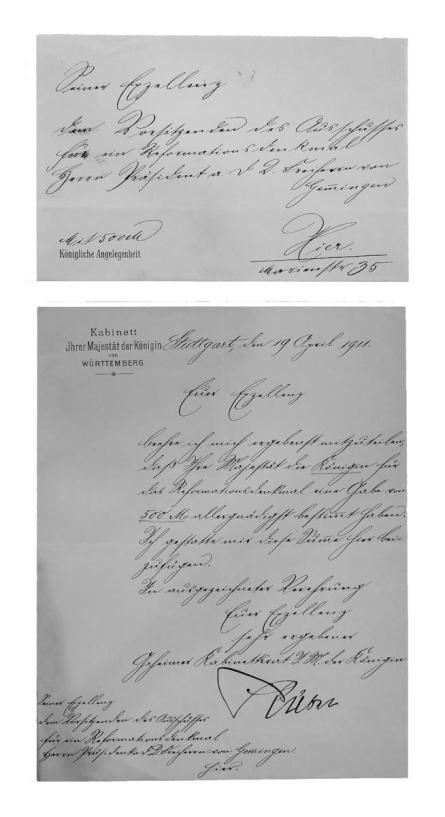 Seiner Exzellenz
dem Vorsitzenden des Ausschusses
für ein Reformationsdenkmal
Herrn Präsident a D D. Freiherrn von
Gemmingen
Mit 500 M
Königliche Angelegenheit
Hier.
Marienstr 35
Kabinett
Jhrer Majestät der Königin
von
WÜRTTEMBERG
Stuttgart, den 19 April 1911.
Euer Exzellenz
beehre ich mich ergebenst mitzuteilen,
daß Ihre Majestät die Königin für
das Reformationsdenkmal eine Gabe von
500 M allergnädigst bestimmt haben.
Ich gestatte mir diese Summe hier bei-
zufügen.
In ausgezeichneter Verehrung
Euer Exzellenz
sehr ergebener
Geheimer Kabinettsrat I. M. der Königin
Seiner Exzellenz
dem Vorsitzenden des Ausschusses
für ein Reformationsdenkmal
Herrn Präsident a D D Freiherrn von Gemmingen.
Hier.